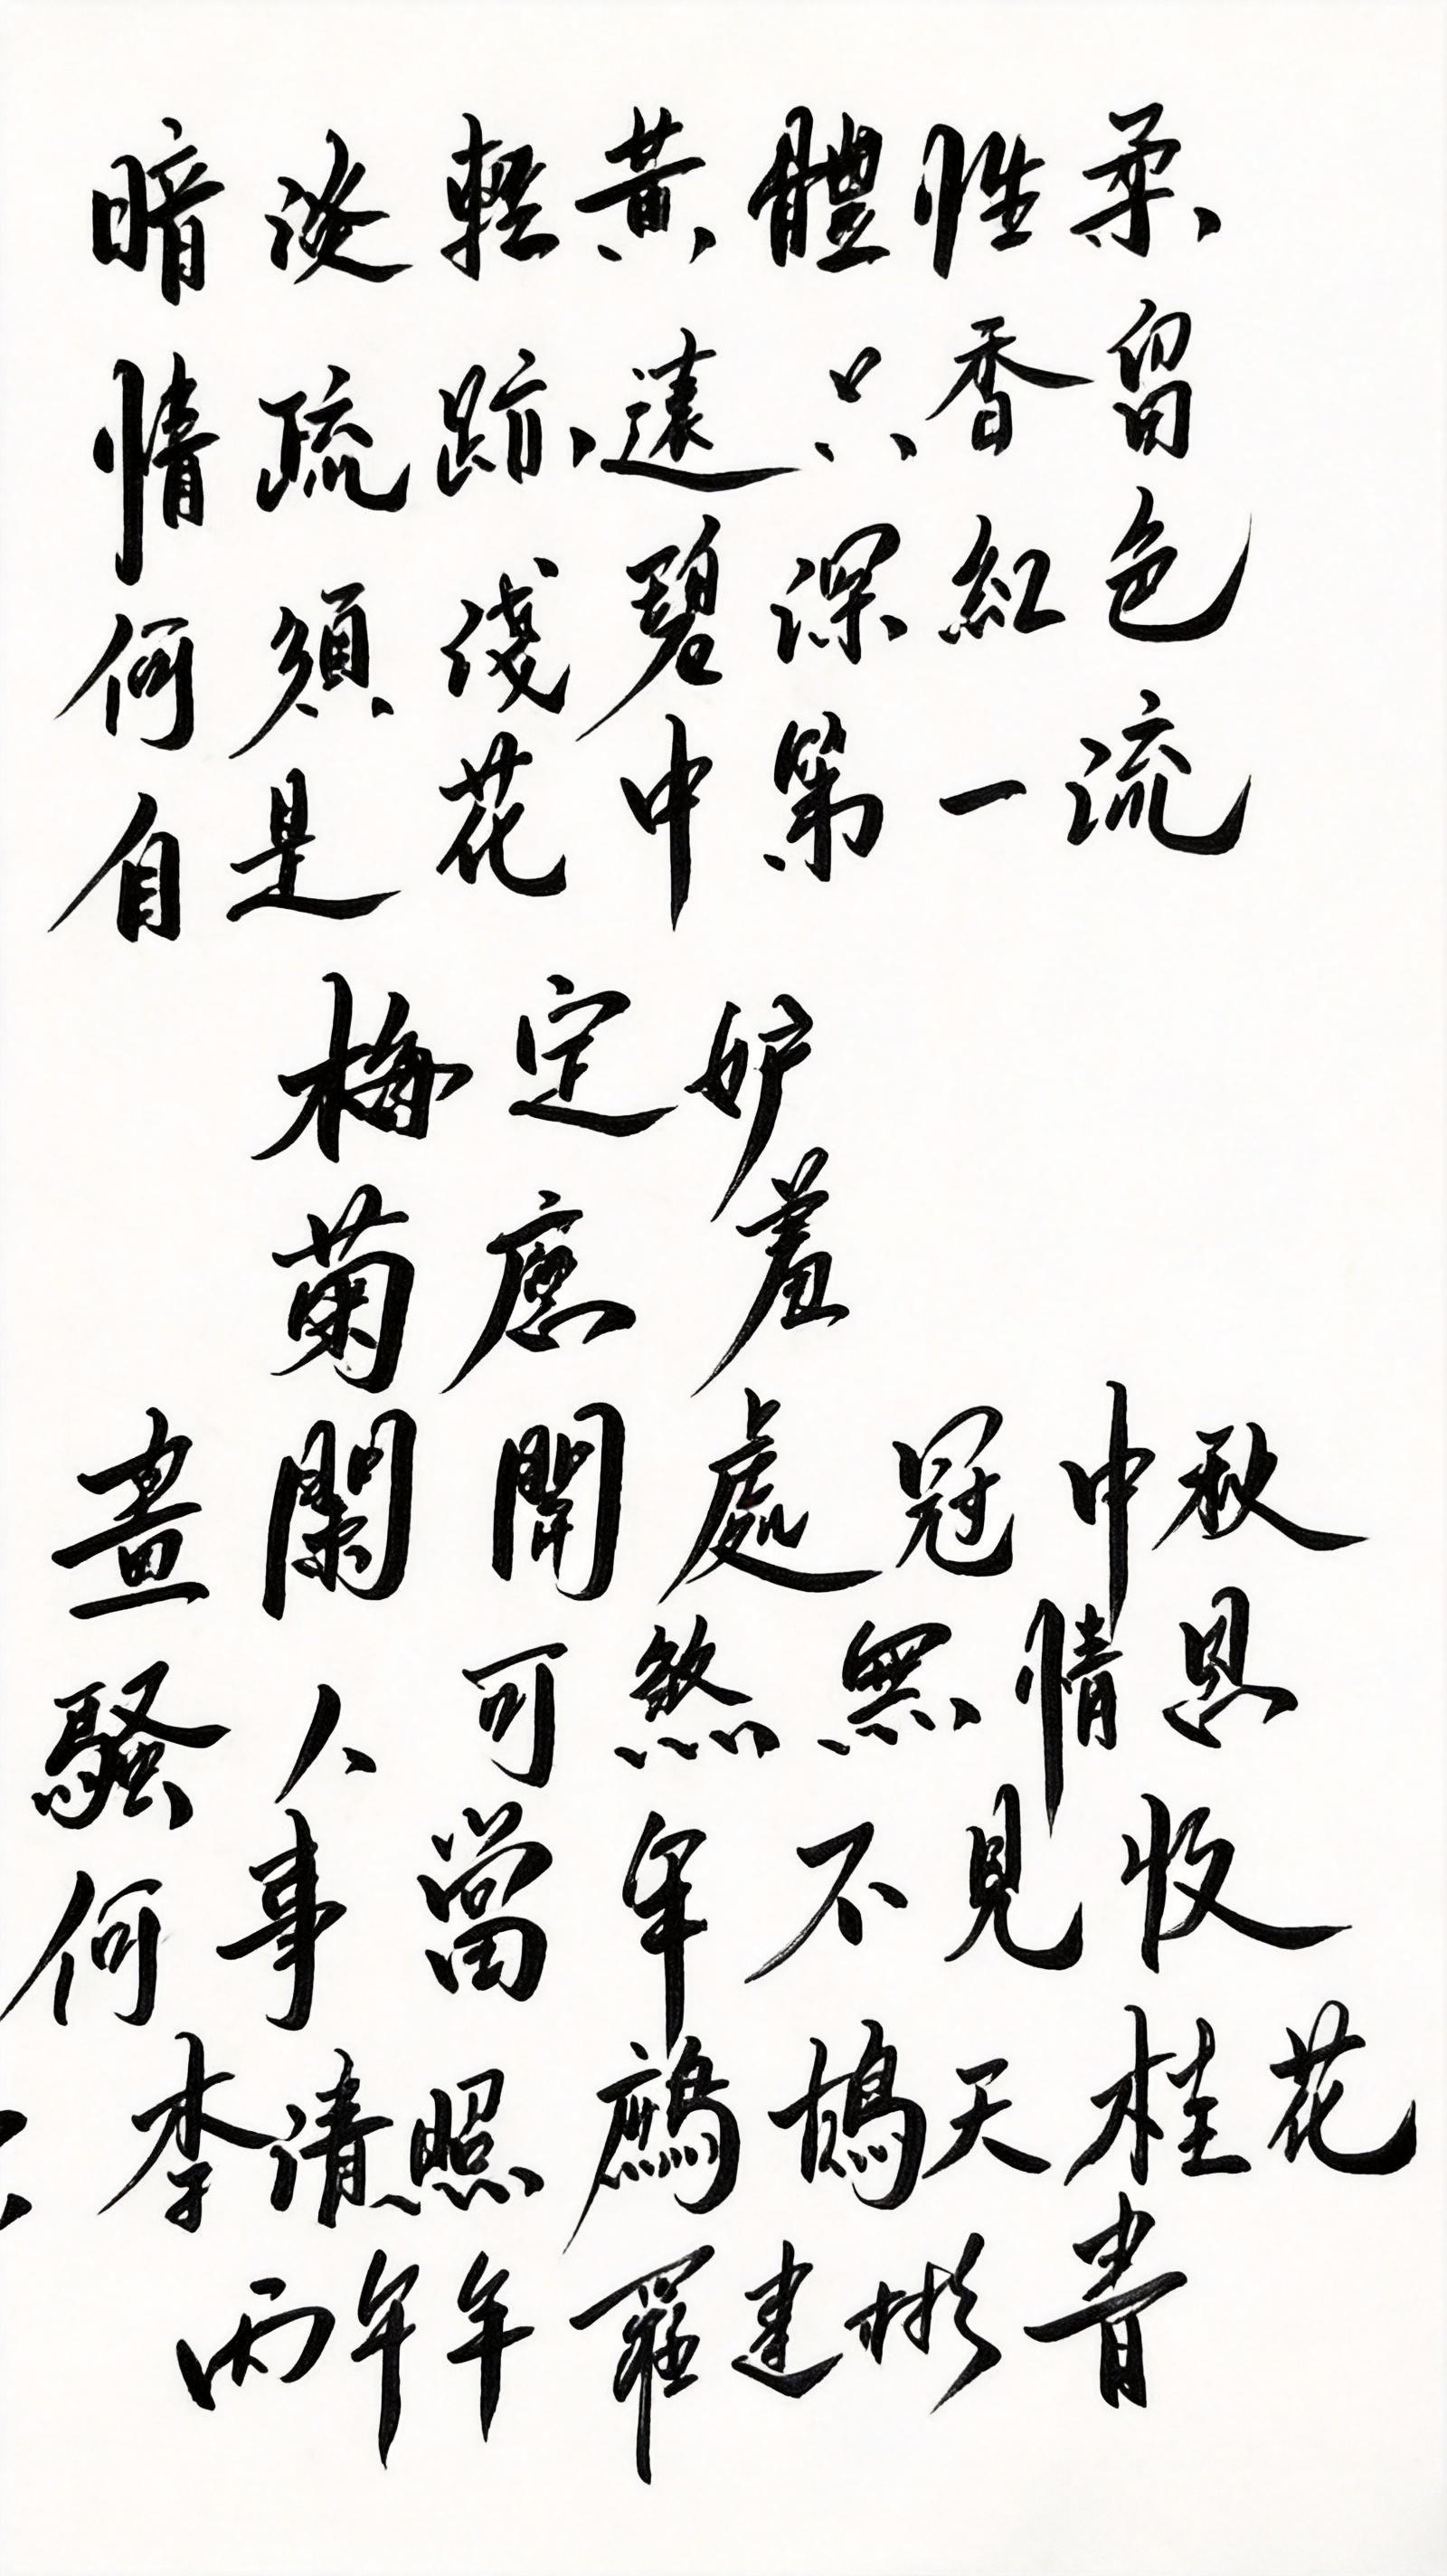 暗淡輕黃體性柔
情疏跡遠只香留
何須淺碧深紅色
自是花中第一流
梅定妒
菊應羞
畫闌開處冠中秋
騷人可煞無情思
何事當年不見收
李清照鷓鴣天桂花
丙午年羅建彬書